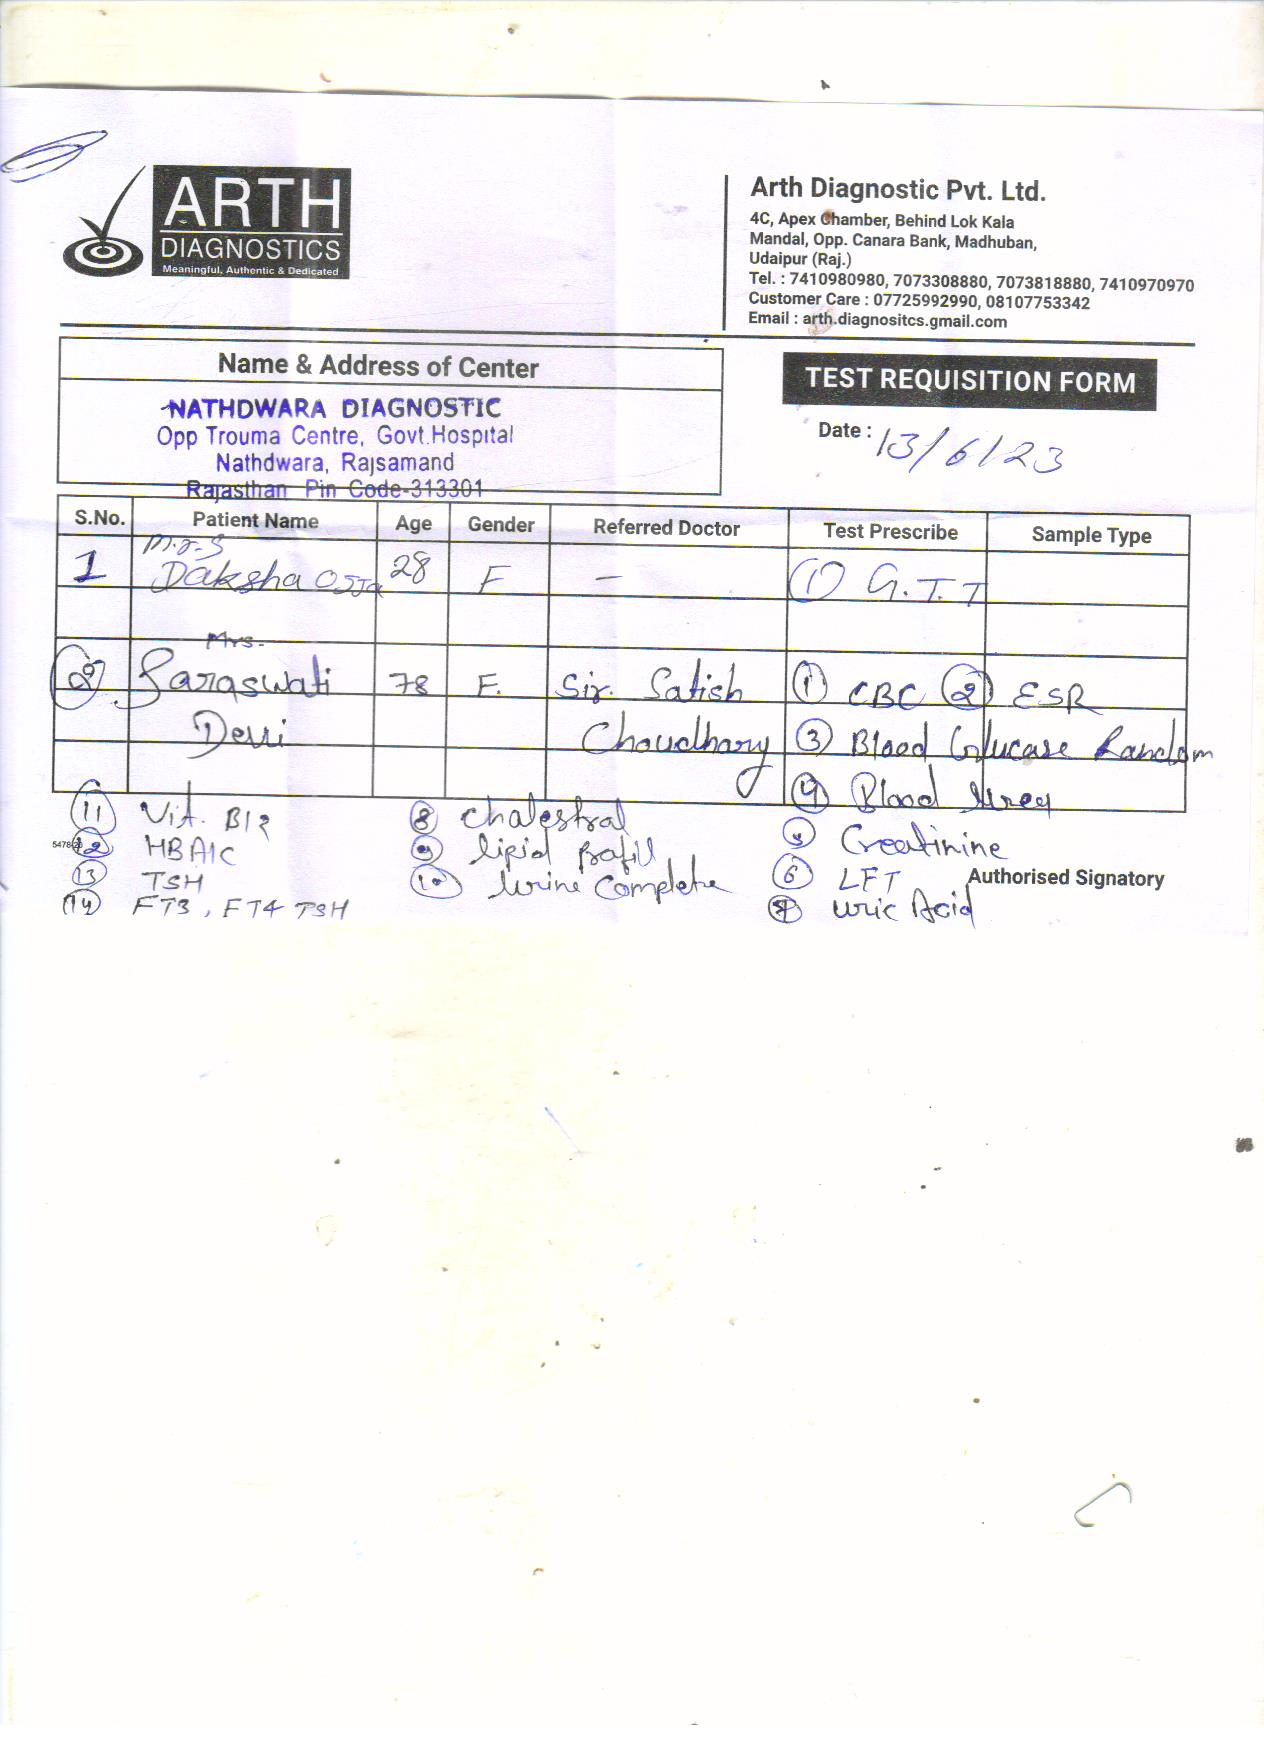 ARTH
DIAGNOSTICS
Meaningful, Authentic & Dedicated
Arth Diagnostic Pvt. Ltd.
4C, Apex Chamber, Behind Lok Kala
Mandal, Opp. Canara Bank, Madhuban,
Udaipur (Raj.)
Tel. : 7410980980, 7073308880, 7073818880, 7410970970
Customer Care : 07725992990, 08107753342
Email : arth.diagnositcs.gmail.com
Name & Address of Center
NATHDWARA DIAGNOSTIC
Opp Trouma Centre, Govt.Hospital
Nathdwara, Rajsamand
Rajasthan Pin Code-313301
TEST REQUISITION FORM
Date : 13/6/23
S.No. Patient Name Age Gender Referred Doctor Test Prescribe Sample Type
Mrs
1 Daksha OJJa 28 F — (1) G.T.T
Mrs.
2 Saraswati 78 F. Sir. Satish 1 CBC 2 ESR
Devi Choudhary 3 Blood Glucase Random
4 Blood Urey
11 Vit. B12 8 Chalestral 5 Creatinine
12 HBA1C 9 lipid Profil 6 LFT Authorised Signatory
13 TSH 10 Urine Complete 7 Uric Acid
14 FT3, FT4 TSH